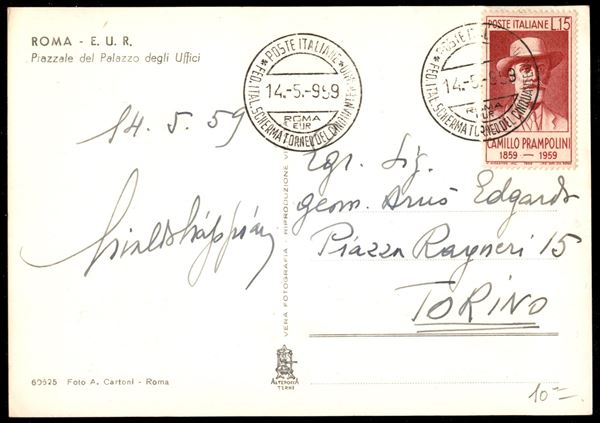 ROMA - E. U. R.
Piazzale del Palazzo degli Uffici
14. 5. 59
* POSTE ITALIANE *
14.-5.-959
ROMA
EUR
FED. ITAL. SCHERMA TORNEO DEL
POSTE ITALIANE L.15
14.-5.-959
ROMA
EUR
FED. ITAL. SCHERMA TORNEO DEL
CAMILLO PRAMPOLINI
1859 — 1959
Egr. Sig.
geom. Edgardo
Piazza Rayneri 15
TORINO
VERA FOTOGRAFIA - RIPRODUZIONE
ALTEROCCA
TERNI
60625 Foto A. Cartoni - Roma
10